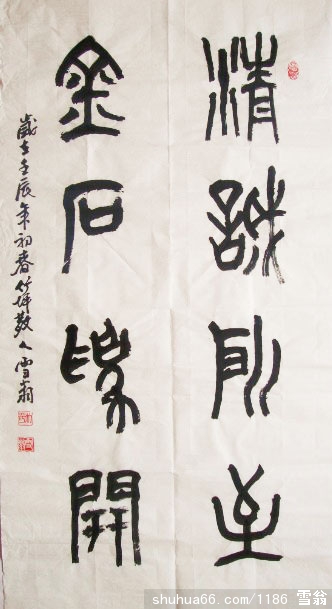 精誠所至
金石為開
歲在壬辰年初春竹坪散人雪翁
shuhua66.com/1186 雪翁